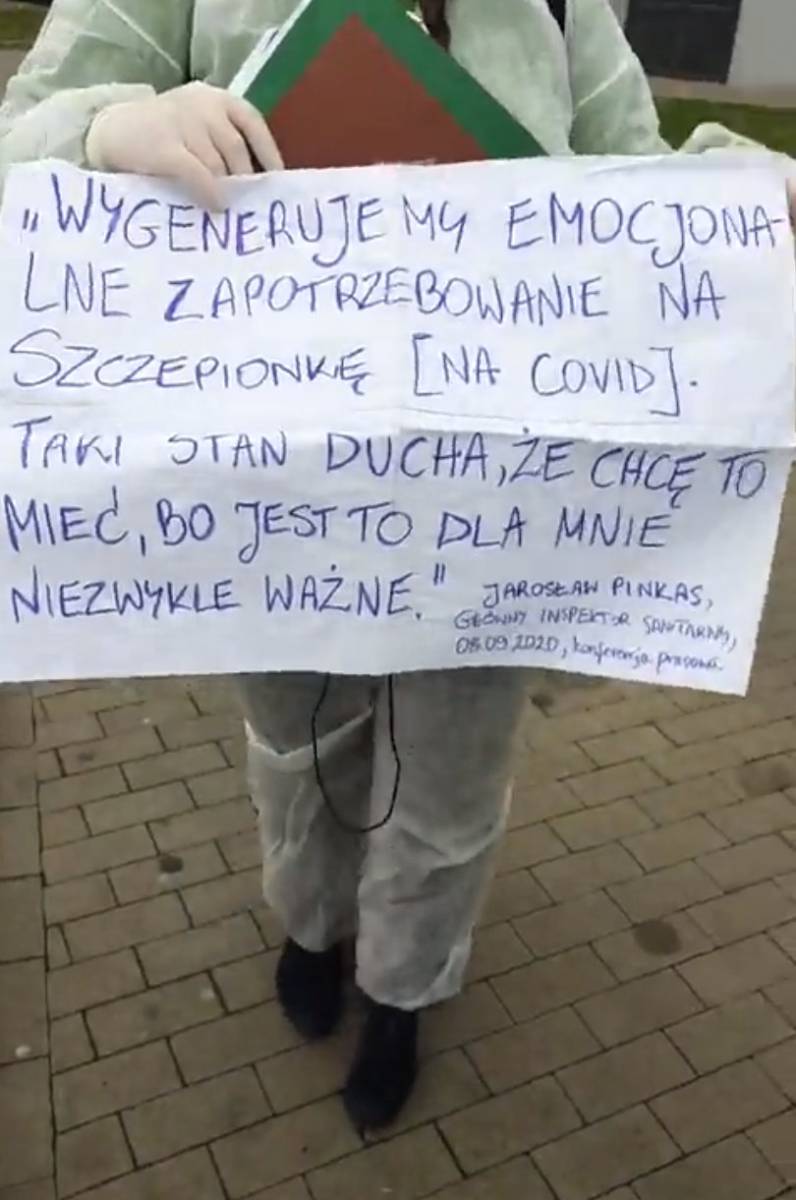 „WYGENERUJEMY EMOCJONA-
LNE ZAPOTRZEBOWANIE NA
SZCZEPIONKĘ [NA COVID].
TAKI STAN DUCHA, ŻE CHCĘ TO
MIEĆ, BO JEST TO DLA MNIE
NIEZWYKLE WAŻNE."
JAROSŁAW PINKAS,
GŁÓWNY INSPEKTOR SANITARNY,
08.09.2020, konferencja prasowa.